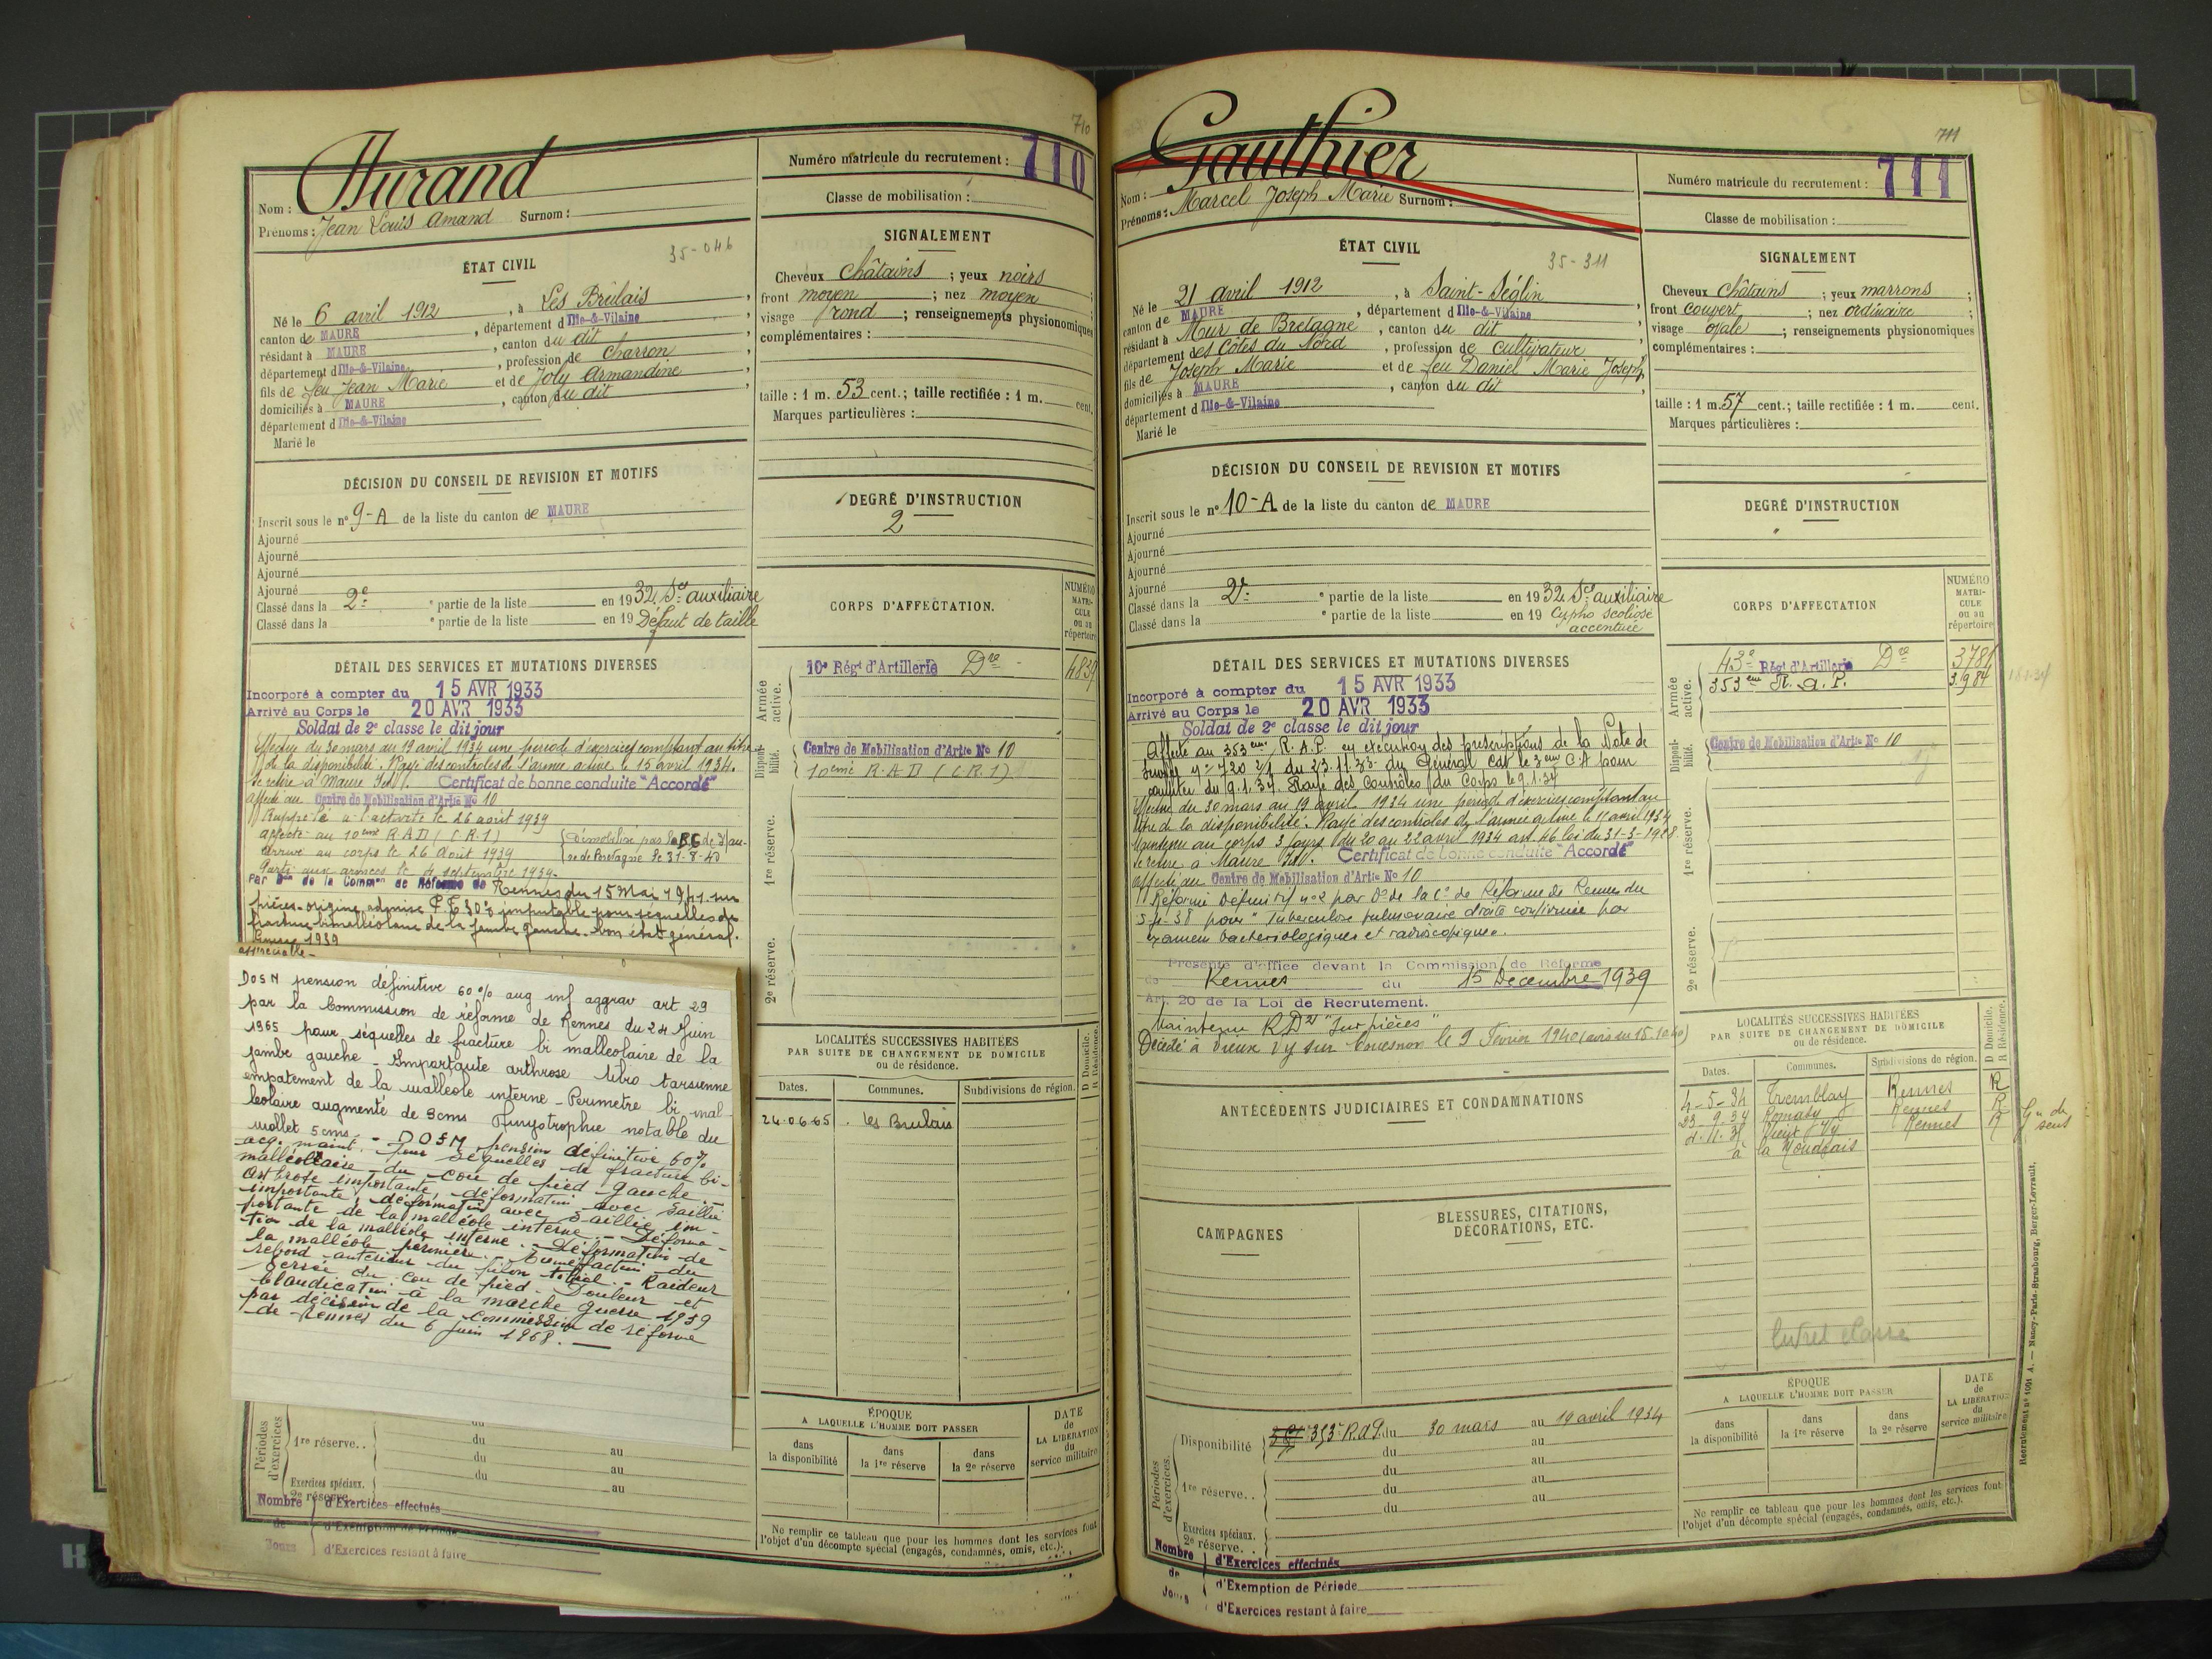 710
Durand
Nom :
Prénoms : Jean Louis Amand Surnom :
Numéro matricule du recrutement : 710
Classe de mobilisation :
35-046
ÉTAT CIVIL
Né le 6 avril 1912, à Les Brûlais,
canton de MAURE, département d Ille-&-Vilaine,
résidant à MAURE, canton du dit,
département d Ille-&-Vilaine, profession de charron,
fils de feu Jean Marie et de Joly Armandine,
domiciliés à MAURE, canton du dit,
département d Ille-&-Vilaine
Marié le
SIGNALEMENT
Cheveux châtains ; yeux noirs
front moyen ; nez moyen ;
visage rond ; renseignements physionomiques
complémentaires :
taille : 1 m. 53 cent. ; taille rectifiée : 1 m. cent.
Marques particulières :
DÉCISION DU CONSEIL DE REVISION ET MOTIFS
Inscrit sous le n° 9-A de la liste du canton de MAURE
Ajourné
Ajourné
Ajourné
Ajourné
Classé dans la 2e ° partie de la liste en 1932. Sce auxiliaire
Classé dans la ° partie de la liste en 19 Défaut de taille
DEGRÉ D'INSTRUCTION
2
DÉTAIL DES SERVICES ET MUTATIONS DIVERSES
Incorporé à compter du 15 AVR 1933
Arrivé au Corps le 20 AVR 1933
Soldat de 2e classe le dit jour
Effectue du 30 mars au 19 avril 1934 une période d'exercices comptant au titre
de la disponibilité. Rayé des contrôles de l'armée active le 15 avril 1934.
Se retire à Maure I&V. Certificat de bonne conduite "Accordé"
Affecté au Centre de Mobilisation d'Artie No 10
Rappelé à l'activité le 26 août 1939
affecté au 10ème R.A.D (C.R.1)
arrivé au corps le 26 Août 1939
Démobilisé par la de
de Bretagne le 31-8-40
Parti aux armées le 4 septembre 1939.
Par Don de la Common de Réforme de Rennes du 15 Mai 1941 sur
pièces-origine admise P.T 30% imputable pour séquelles de
fracture bimalléolaire de la jambe gauche. bon état général.
Guerre 1939
DOSN pension définitive 60% aug inf aggrav art 29
par la Commission de réforme de Rennes du 24 Juin
1965 pour séquelles de fracture bi malleolaire de la
jambe gauche - Importante arthrose tibio tarsienne
empatement de la malleole interne - Perimetre bi-mal-
leolaire augmenté de 3cms Amyotrophie notable du
mollet 5cms. - DOSM pension définitive 60%
acq. maint. pour séquelles de fracture bi-
malléolaire du cou de pied gauche. -
Arthrose importante, déformation avec saillie
importante, déformation avec saillie im-
portante de la malléole interne - Déforma-
tion de la malléole interne. - Déformation de
la malléole péronière. - Tuméfaction du
rebord antérieur du pilon tibial. - Raideur
serrée du cou de pied. Douleur et
claudication à la marche guerre 1939
par décision de la commission de réforme
de Rennes du 6 juin 1968. -
CORPS D'AFFECTATION.
NUMÉRO MATRI-CULE ou au répertoire
Armée active.
10e Régt d'Artillerie Dre 4839
Disponi-bilité.
Centre de Mobilisation d'Artie No 10
10ème R.A.D (C.R.1)
1re réserve.
2e réserve.
LOCALITÉS SUCCESSIVES HABITÉES
PAR SUITE DE CHANGEMENT DE DOMICILE
ou de résidence.
D Domicile. R Résidence.
Dates. Communes. Subdivisions de région.
24.06.65 Les Brulais
Périodes d'exercices
1re réserve. . du au
du au
du au
Exercices spéciaux.
2e réserve.
Nombre de Jours
d'Exercices effectués
d'Exemption de Période
d'Exercices restant à faire
ÉPOQUE
A LAQUELLE L'HOMME DOIT PASSER
dans la disponibilité
dans la 1re réserve
dans la 2e réserve
DATE de LA LIBÉRATION du service militaire
Ne remplir ce tableau que pour les hommes dont les services font
l'objet d'un décompte spécial (engagés, condamnés, omis, etc.).
711
Gauthier
Nom :
Prénoms : Marcel Joseph Marie Surnom :
Numéro matricule du recrutement : 711
Classe de mobilisation :
35-311
ÉTAT CIVIL
Né le 21 avril 1912, à Saint-Séglin,
canton de MAURE, département d Ille-&-Vilaine,
résidant à Mur de Bretagne, canton du dit,
département des Côtes du Nord, profession de cultivateur
fils de Joseph Marie et de feu Daniel Marie Joseph,
domiciliés à MAURE, canton du dit,
département d Ille-&-Vilaine
Marié le
SIGNALEMENT
Cheveux châtains ; yeux marrons ;
front couvert ; nez ordinaire ;
visage ovale ; renseignements physionomiques
complémentaires :
taille : 1 m. 57 cent. ; taille rectifiée : 1 m. cent.
Marques particulières :
DÉCISION DU CONSEIL DE REVISION ET MOTIFS
Inscrit sous le n° 10-A de la liste du canton de MAURE
Ajourné
Ajourné
Ajourné
Ajourné
Classé dans la 2e ° partie de la liste en 1932 Sce auxiliaire
Classé dans la ° partie de la liste en 19 Cypho scoliose
accentuée
DEGRÉ D'INSTRUCTION
DÉTAIL DES SERVICES ET MUTATIONS DIVERSES
Incorporé à compter du 15 AVR 1933
Arrivé au Corps le 20 AVR 1933
Soldat de 2e classe le dit jour
Affecté au 353ème R.A.P. en exécution des prescriptions de la Note de
Service n° 720 2/1 du 23.11.33 du Général Cdt le 3ème C.A pour
compter du 9.1.34. Rayé des Contrôles du Corps le 9.1.34
Effectue du 30 mars au 19 avril 1934 une période d'exercices comptant au
titre de la disponibilité. Rayé des contrôles de l'armée active le 15 avril 1934
Maintenu au corps 3 jours du 20 au 22 avril 1934 art. 46 loi du 31-3-1928.
Se retire à Maure I&V. Certificat de bonne conduite "Accordé"
Affecté au Centre de Mobilisation d'Artie No 10
Réformé Définitif n°2 par Don de la Con de Réforme de Rennes du
38 pour "Tuberculose pulmonaire droite confirmée par
examen bactériologique et radioscopique".
Présenté d'office devant la Commission de Réforme
de Rennes du 15 Décembre 1939
Art. 20 de la Loi de Recrutement.
Maintenu RD2 "Sur pièces"
Décédé à Vieux Vy sur Couesnon le 9 Février 1940 (avis du 15.10.40)
CORPS D'AFFECTATION
NUMÉRO MATRI-CULE ou au répertoire
Armée active.
43e Régt d'Artillerie Dre 3781
353ème R.A.P. 3.984
Disponi-bilité.
Centre de Mobilisation d'Artie No 10
1re réserve.
2e réserve.
ANTÉCÉDENTS JUDICIAIRES ET CONDAMNATIONS
CAMPAGNES
BLESSURES, CITATIONS,
DÉCORATIONS, ETC.
LOCALITÉS SUCCESSIVES HABITÉES
PAR SUITE DE CHANGEMENT DE DOMICILE
ou de résidence.
D Domicile. R Résidence.
Dates. Communes. Subdivisions de région.
4-5-34 Tremblay Rennes R
23-9-34 Romazy Rennes R
Vieux Vy Rennes R
à la
Livret classé
Périodes d'exercices.
Disponibilité 353e R.A.P. du 30 mars au 19 avril 1934
du au
du au
1re réserve. . du au
du au
Exercices spéciaux.
2e réserve. .
Nombre de Jours
d'Exercices effectués
d'Exemption de Période
d'Exercices restant à faire
ÉPOQUE
A LAQUELLE L'HOMME DOIT PASSER
dans la disponibilité
dans la 1re réserve
dans la 2e réserve
DATE de LA LIBÉRATION du service militaire
Ne remplir ce tableau que pour les hommes dont les services font
l'objet d'un décompte spécial (engagés, condamnés, omis, etc.).
Nancy-Paris-Strasbourg, Berger-Levrault.